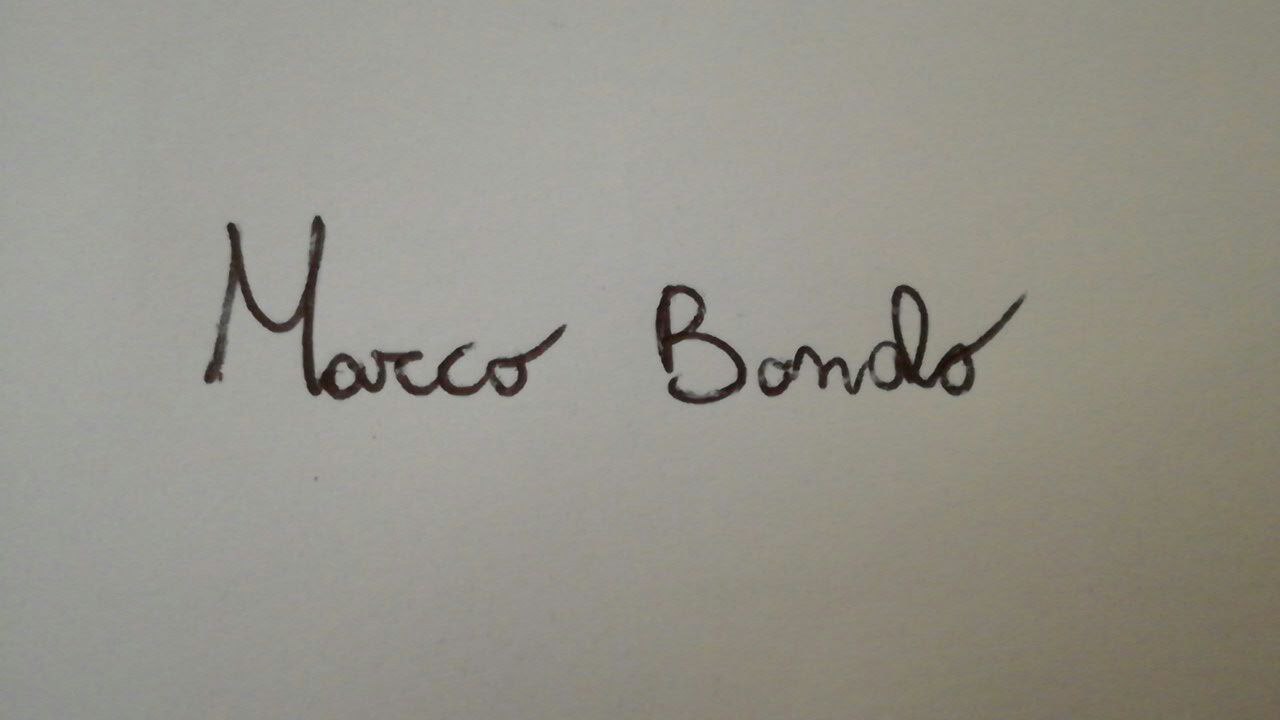 Marco Bondo